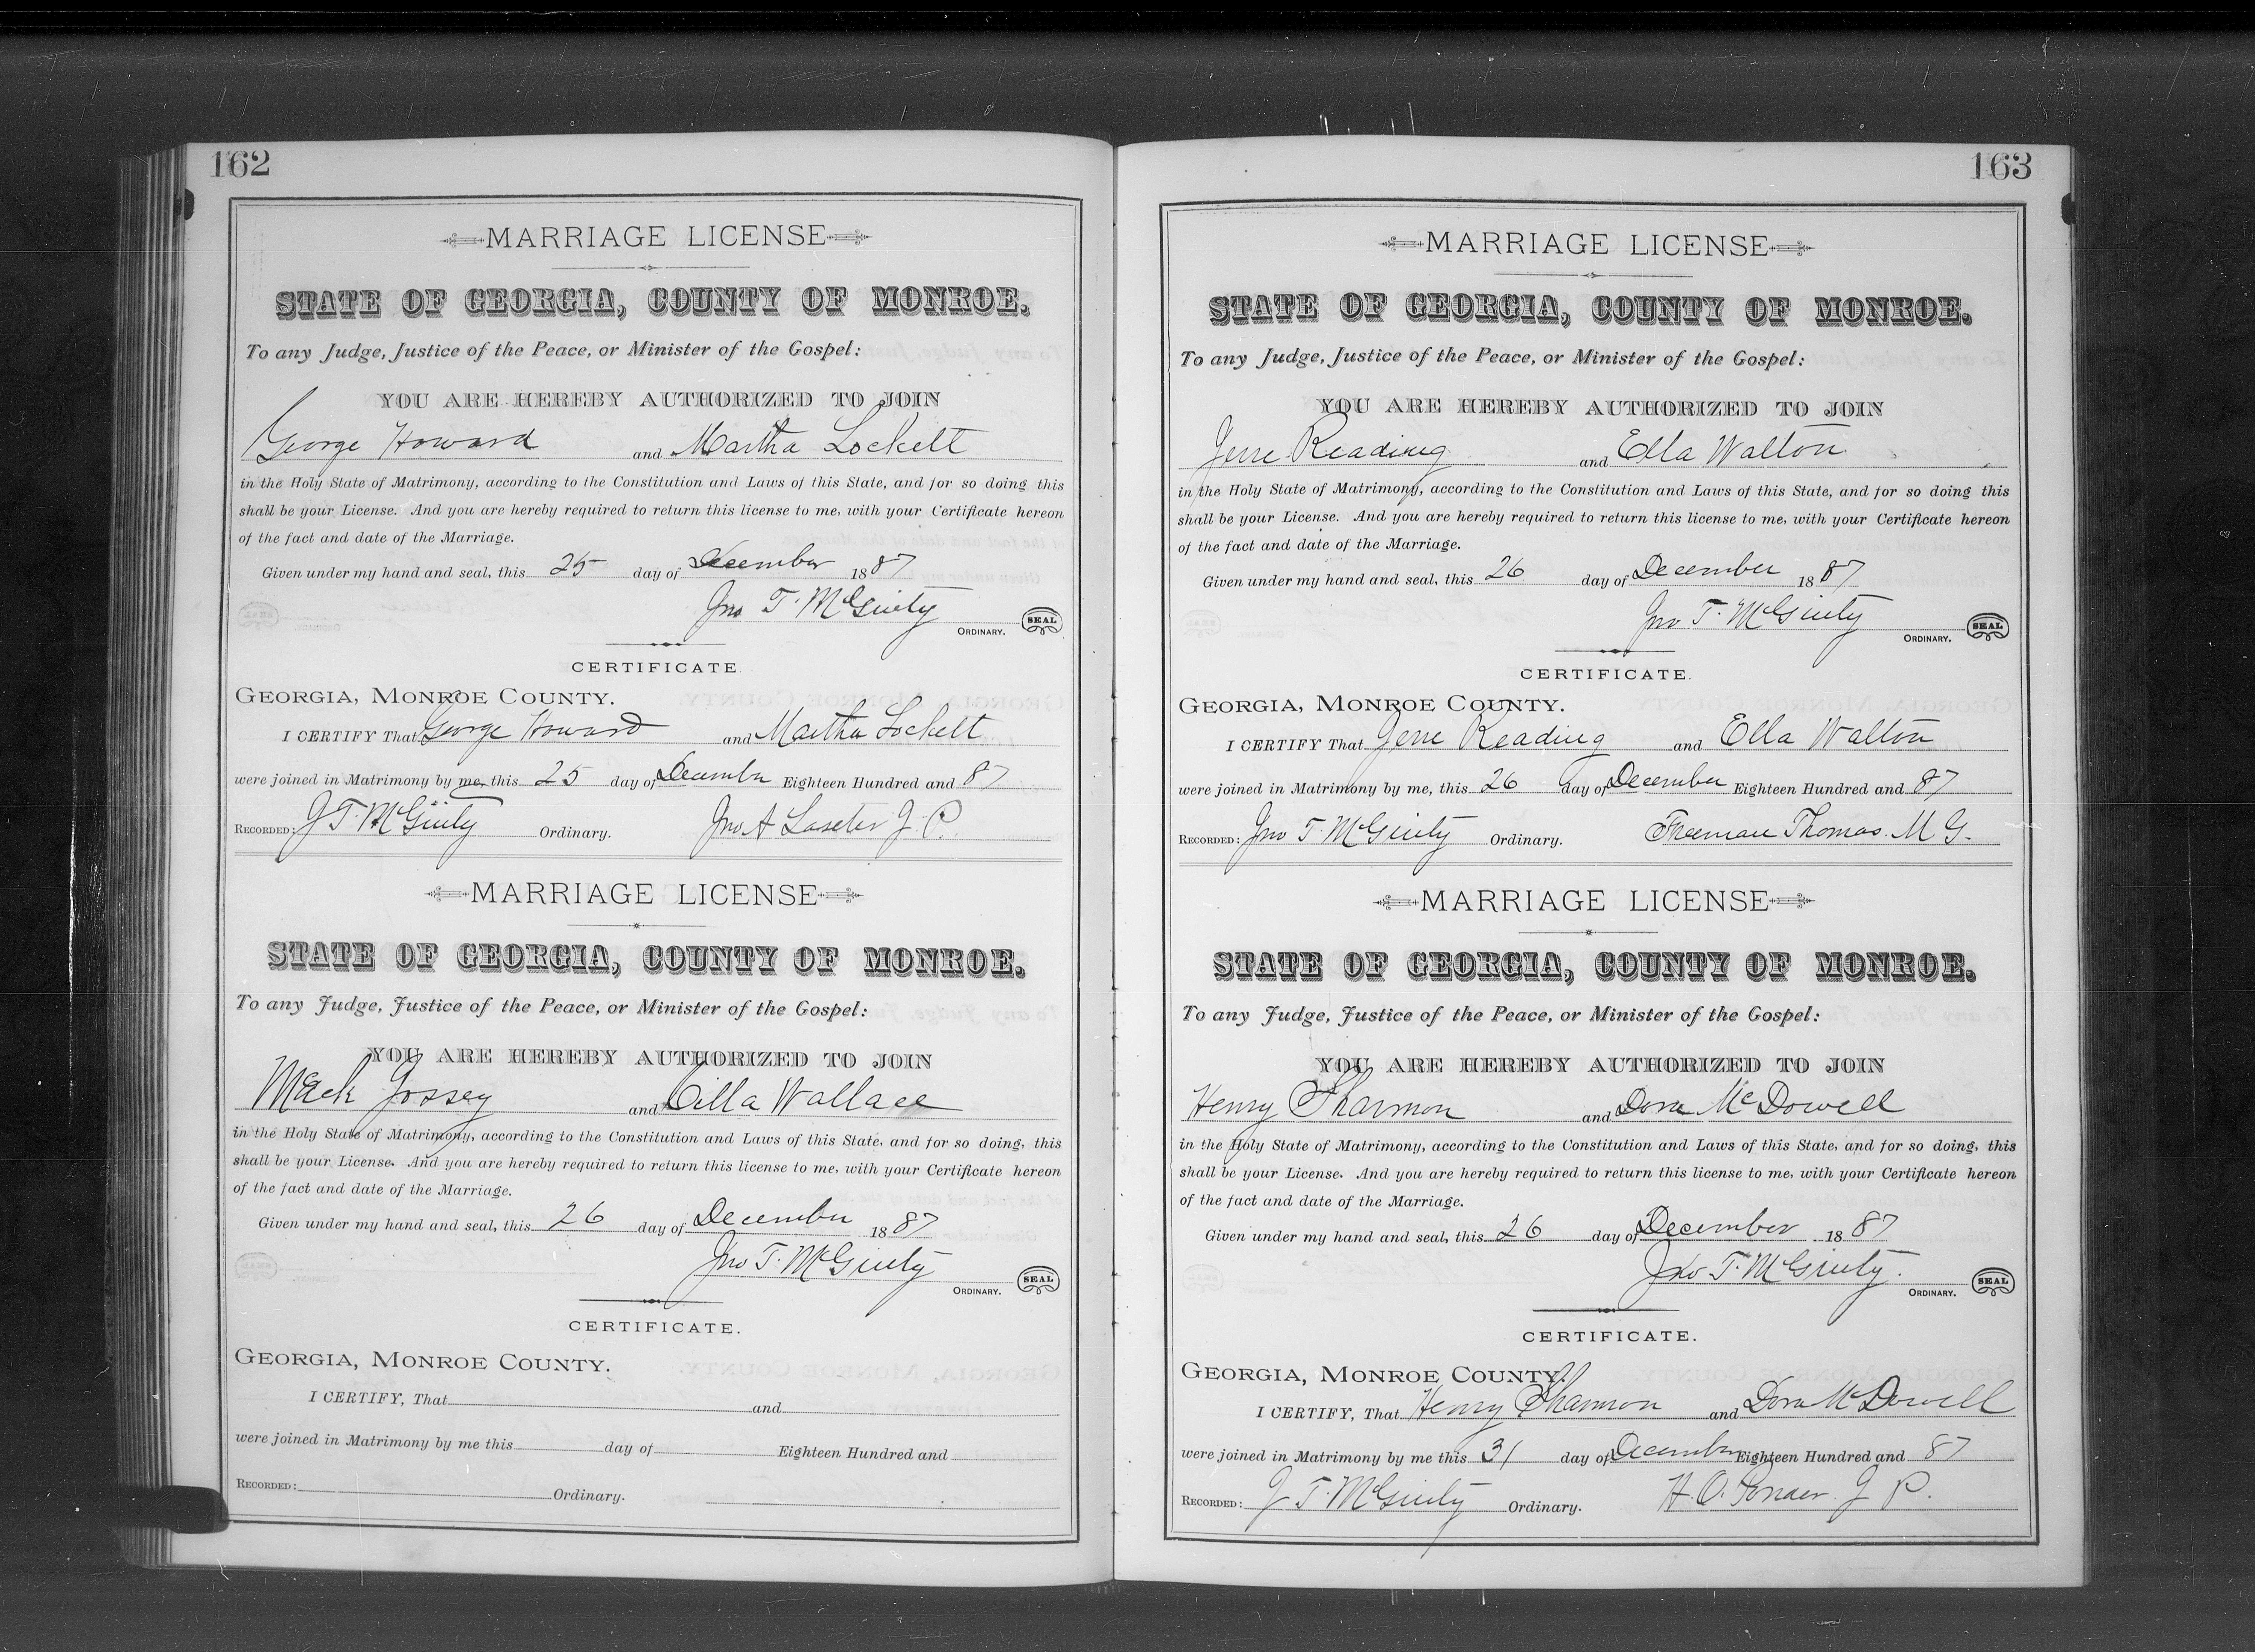 162
MARRIAGE LICENSE
STATE OF GEORGIA, COUNTY OF MONROE.
To any Judge, Justice of the Peace, or Minister of the Gospel:
YOU ARE HEREBY AUTHORIZED TO JOIN
George Howard and Martha Lockett
in the Holy State of Matrimony, according to the Constitution and Laws of this State, and for so doing this
shall be your License. And you are hereby required to return this license to me, with your Certificate hereon
of the fact and date of the Marriage.
Given under my hand and seal, this 25 day of December 1887
Jno T. McGinty
ORDINARY. SEAL
CERTIFICATE
GEORGIA, MONROE COUNTY.
I CERTIFY That George Howard and Martha Lockett
were joined in Matrimony by me, this 25 day of December Eighteen Hundred and 87
RECORDED: J T. McGinty Ordinary. Jno A Laseter J. P.
MARRIAGE LICENSE
STATE OF GEORGIA, COUNTY OF MONROE.
To any Judge, Justice of the Peace, or Minister of the Gospel:
YOU ARE HEREBY AUTHORIZED TO JOIN
Mack Gossey and Cilla Wallace
in the Holy State of Matrimony, according to the Constitution and Laws of this State, and for so doing, this
shall be your License. And you are hereby required to return this license to me, with your Certificate hereon
of the fact and date of the Marriage.
Given under my hand and seal, this 26 day of December 1887
Jno T. McGinty
ORDINARY. SEAL
CERTIFICATE.
GEORGIA, MONROE COUNTY.
I CERTIFY, That and
were joined in Matrimony by me this day of Eighteen Hundred and
RECORDED: Ordinary.
163
MARRIAGE LICENSE
STATE OF GEORGIA, COUNTY OF MONROE.
To any Judge, Justice of the Peace, or Minister of the Gospel:
YOU ARE HEREBY AUTHORIZED TO JOIN
Jerre Reading and Ella Walton
in the Holy State of Matrimony, according to the Constitution and Laws of this State, and for so doing this
shall be your License. And you are hereby required to return this license to me, with your Certificate hereon
of the fact and date of the Marriage.
Given under my hand and seal, this 26 day of December 1887
Jno T. McGinty
ORDINARY. SEAL
CERTIFICATE.
GEORGIA, MONROE COUNTY.
I CERTIFY That Jerre Reading and Ella Walton
were joined in Matrimony by me, this 26 day of December Eighteen Hundred and 87
RECORDED: Jno T. McGinty Ordinary. Freeman Thomas. M G.
MARRIAGE LICENSE
STATE OF GEORGIA, COUNTY OF MONROE.
To any Judge, Justice of the Peace, or Minister of the Gospel:
YOU ARE HEREBY AUTHORIZED TO JOIN
Henry Sharmon and Dora McDowell
in the Holy State of Matrimony, according to the Constitution and Laws of this State, and for so doing, this
shall be your License. And you are hereby required to return this license to me, with your Certificate hereon
of the fact and date of the Marriage.
Given under my hand and seal, this 26 day of December 1887
Jno T. McGinty.
ORDINARY. SEAL
CERTIFICATE.
GEORGIA, MONROE COUNTY.
I CERTIFY, That Henry Sharmon and Dora McDowell
were joined in Matrimony by me this 31 day of December Eighteen Hundred and 87
RECORDED: J T. McGinty Ordinary. H. O. Ponder. J P.